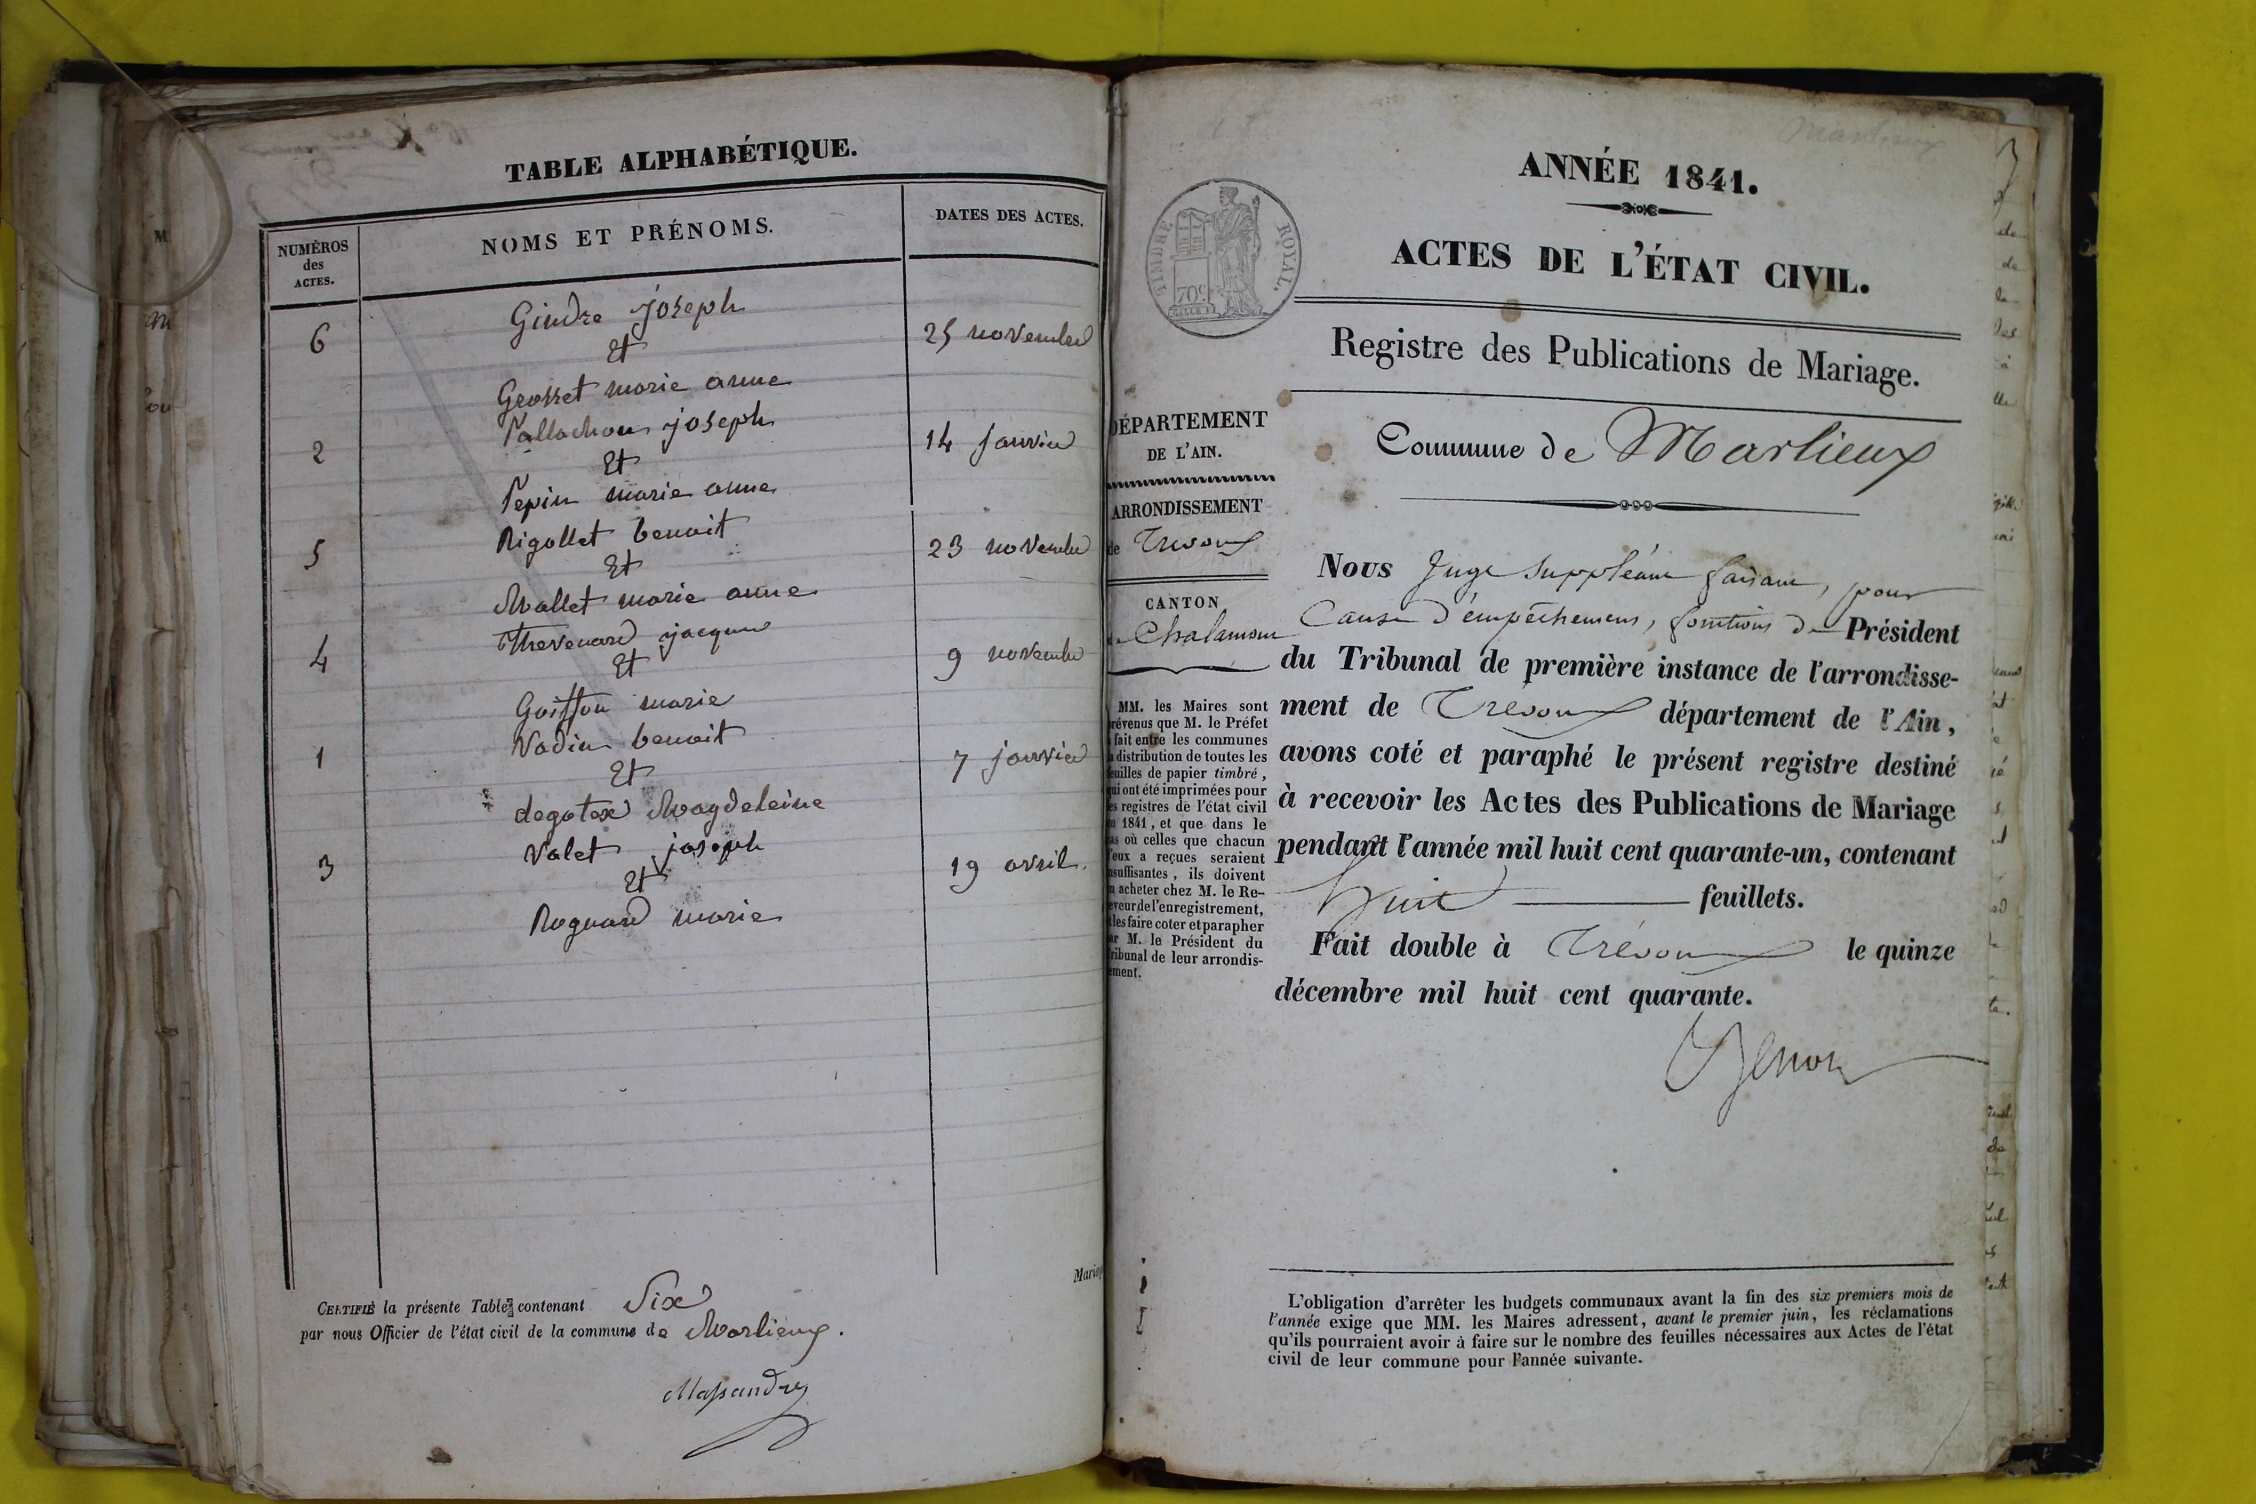 TABLE ALPHABÉTIQUE.
NUMÉROS
des
ACTES.
NOMS ET PRÉNOMS.
DATES DES ACTES.
6
Gindre joseph
Et
marie anne
25 novembre
2
joseph
Et
Pepin marie anne
14 janvier
5
Rigollet benoit
Et
Mallet marie anne
23 novembre
4
Thevenard jacques
Et
Goiffon marie
9 novembre
1
Vadin benoit
Et
Magdeleine
7 janvier
3
Valet joseph
Et
marie
19 avril.
Mariag
CERTIFIÉ la présente Table contenant Six
par nous Officier de l'état civil de la commune de Marlieux.
ANNÉE 1841.
ACTES DE L'ÉTAT CIVIL.
TIMBRE ROYAL.
70c
Registre des Publications de Mariage.
Commune de Marlieux
DÉPARTEMENT
DE L'AIN.
ARRONDISSEMENT
de Trévoux
CANTON
de Chalamont
MM. les Maires sont
prévenus que M. le Préfet
a fait entre les communes
la distribution de toutes les
feuilles de papier timbré,
qui ont été imprimées pour
les registres de l'état civil
en 1841, et que dans le
cas où celles que chacun
d'eux a reçues seraient
insuffisantes, ils doivent
en acheter chez M. le Re-
ceveur de l'enregistrement,
et les faire coter et parapher
par M. le Président du
Tribunal de leur arrondis-
sement.
Nous Juge Suppléant faisant, pour
Cause d'empêchement, fonctions de Président
du Tribunal de première instance de l'arrondisse-
ment de Trévoux département de l'Ain,
avons coté et paraphé le présent registre destiné
à recevoir les Actes des Publications de Mariage
pendant l'année mil huit cent quarante-un, contenant
huit feuillets.
Fait double à Trévoux le quinze
décembre mil huit cent quarante.
L'obligation d'arrêter les budgets communaux avant la fin des six premiers mois de
l'année exige que MM. les Maires adressent, avant le premier juin, les réclamations
qu'ils pourraient avoir à faire sur le nombre des feuilles nécessaires aux Actes de l'état
civil de leur commune pour l'année suivante.